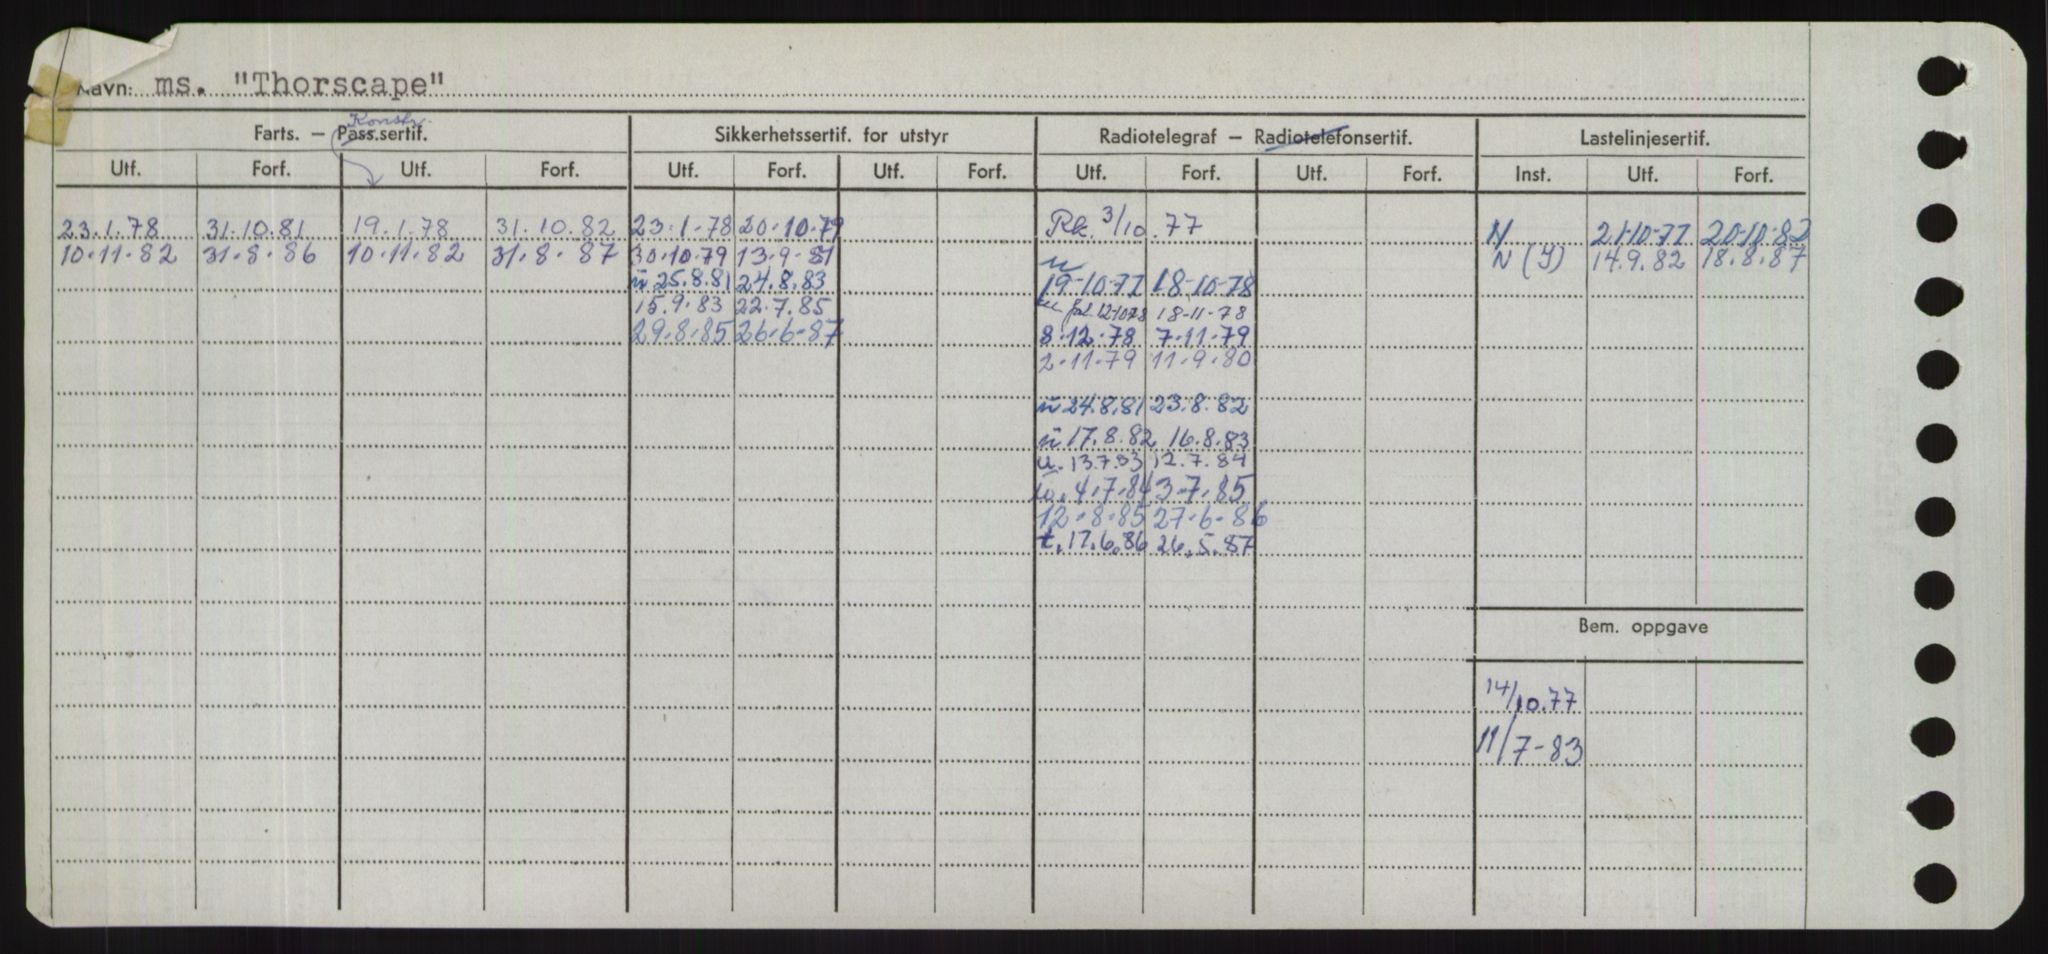 Navn: ms. "Thorscape"
Konstr.
Farts. — Pass.sertif. Sikkerhetssertif. for utstyr Radiotelegraf — Radiotelefonsertif. Lastelinjesertif.
Utf. Forf. Utf. Forf. Utf. Forf. Utf. Forf. Utf. Forf. Utf. Forf. Inst. Utf. Forf.
23.1.78 31.10.81 19.1.78 31.10.82 23.1.78 20.10.79 Rk. 3/10.77 N 21-10-77 20-10-82
10.11.82 31.8.86 10.11.82 31.8.87 30.10.79 13.9.81 N (Y) 14.9.82 18.8.87
u 25.8.81 24.8.83 19-10-77 18-10-78
15.9.83 22.7.85 12-10-78 18-11-78
29.8.85 26.6.87 8.12.78 7.11.79
2.11.79 11.9.80
u 24.8.81 23.8.82
u 17.8.82 16.8.83
u. 13.7.83 12.7.84
4.7.84 3.7.85
12.8.85 27.6.86
t. 17.6.86 26.5.87
Bem. oppgave
14/10.77
11/7-83